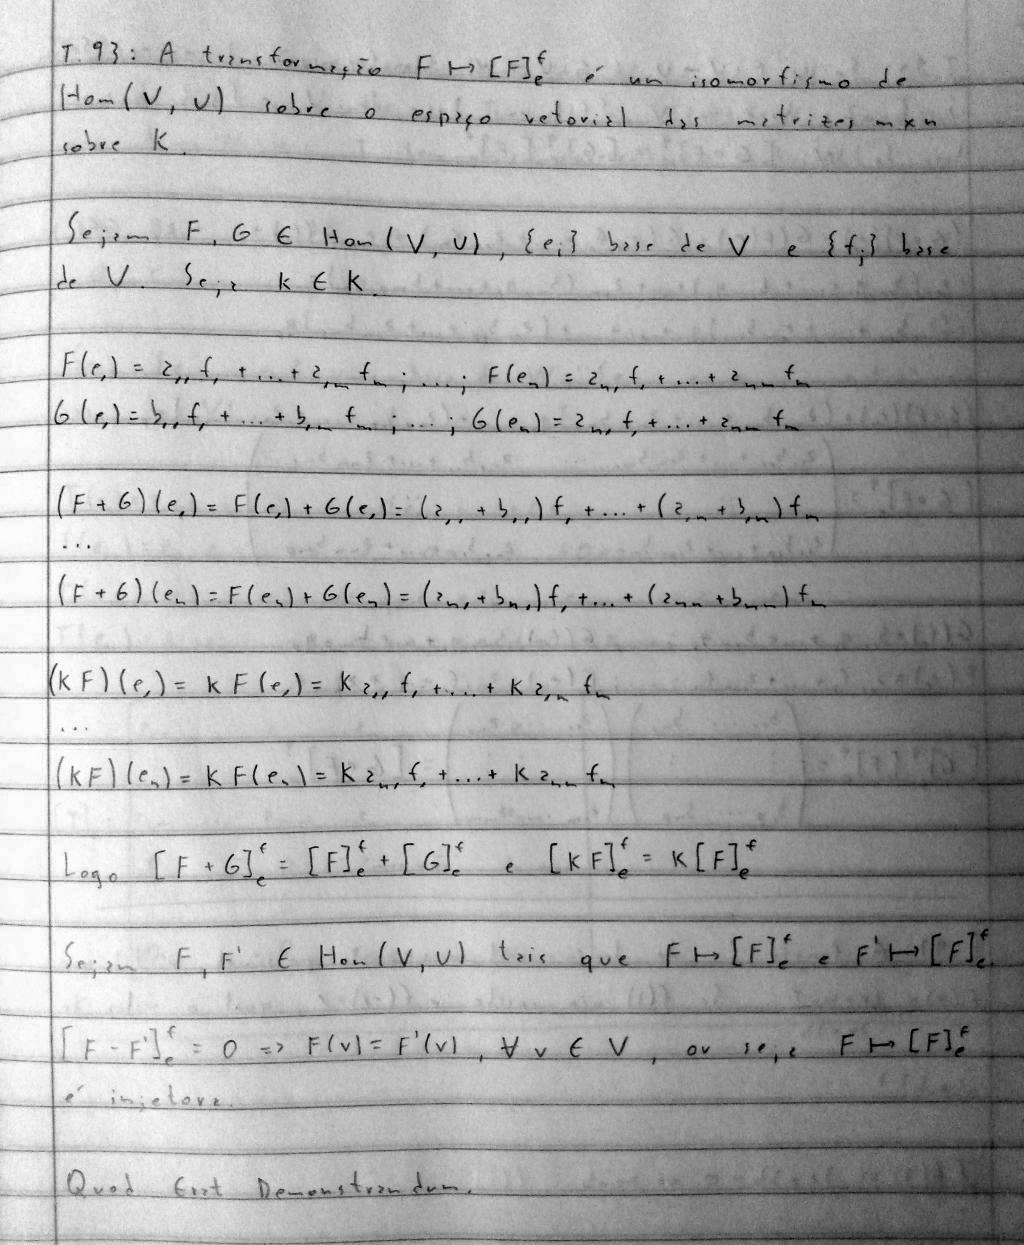 T. 93: A transformação F ↦ [F]ₑᶠ é um isomorfismo de
Hom(V, U) sobre o espaço vetorial das matrizes m×n
sobre K.
Sejam F, G ∈ Hom(V, U), {eᵢ} base de V e {fⱼ} base
de U. Seja k ∈ K.
F(e₁) = a₁₁ f₁ + ... + a₁ₘ fₘ ; ... ; F(eₙ) = aₙ₁ f₁ + ... + aₙₘ fₘ
G(e₁) = b₁₁ f₁ + ... + b₁ₘ fₘ ; ... ; G(eₙ) = aₙ₁ f₁ + ... + aₙₘ fₘ
(F + G)(e₁) = F(e₁) + G(e₁) = (a₁₁ + b₁₁) f₁ + ... + (a₁ₘ + b₁ₘ) fₘ
...
(F + G)(eₙ) = F(eₙ) + G(eₙ) = (aₙ₁ + bₙ₁) f₁ + ... + (aₙₘ + bₙₘ) fₘ
(k F)(e₁) = k F(e₁) = k a₁₁ f₁ + ... + k a₁ₘ fₘ
...
(k F)(eₙ) = k F(eₙ) = k aₙ₁ f₁ + ... + k aₙₘ fₘ
Logo [F + G]ₑᶠ = [F]ₑᶠ + [G]ₑᶠ e [k F]ₑᶠ = k [F]ₑᶠ
Sejam F, F' ∈ Hom(V, U) tais que F ↦ [F]ₑᶠ e F' ↦ [F]ₑᶠ.
[F - F']ₑᶠ = 0 => F(v) = F'(v), ∀ v ∈ V, ou seja F ↦ [F]ₑᶠ
é injetora.
Quod Erat Demonstrandum.